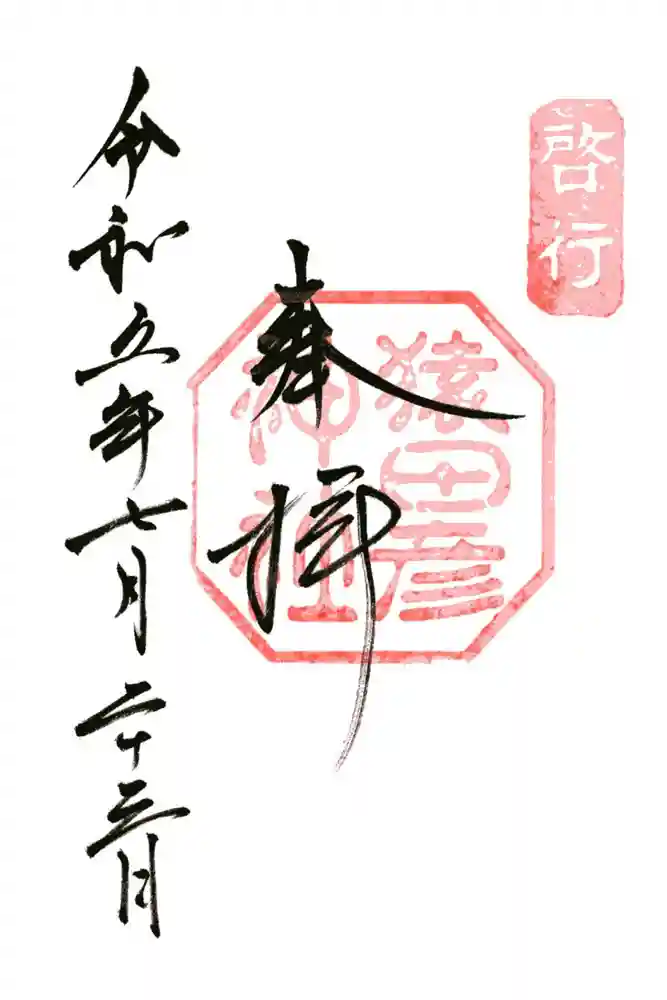 啓行
猿田彦
神社
奉拝
令和五年七月二十三日